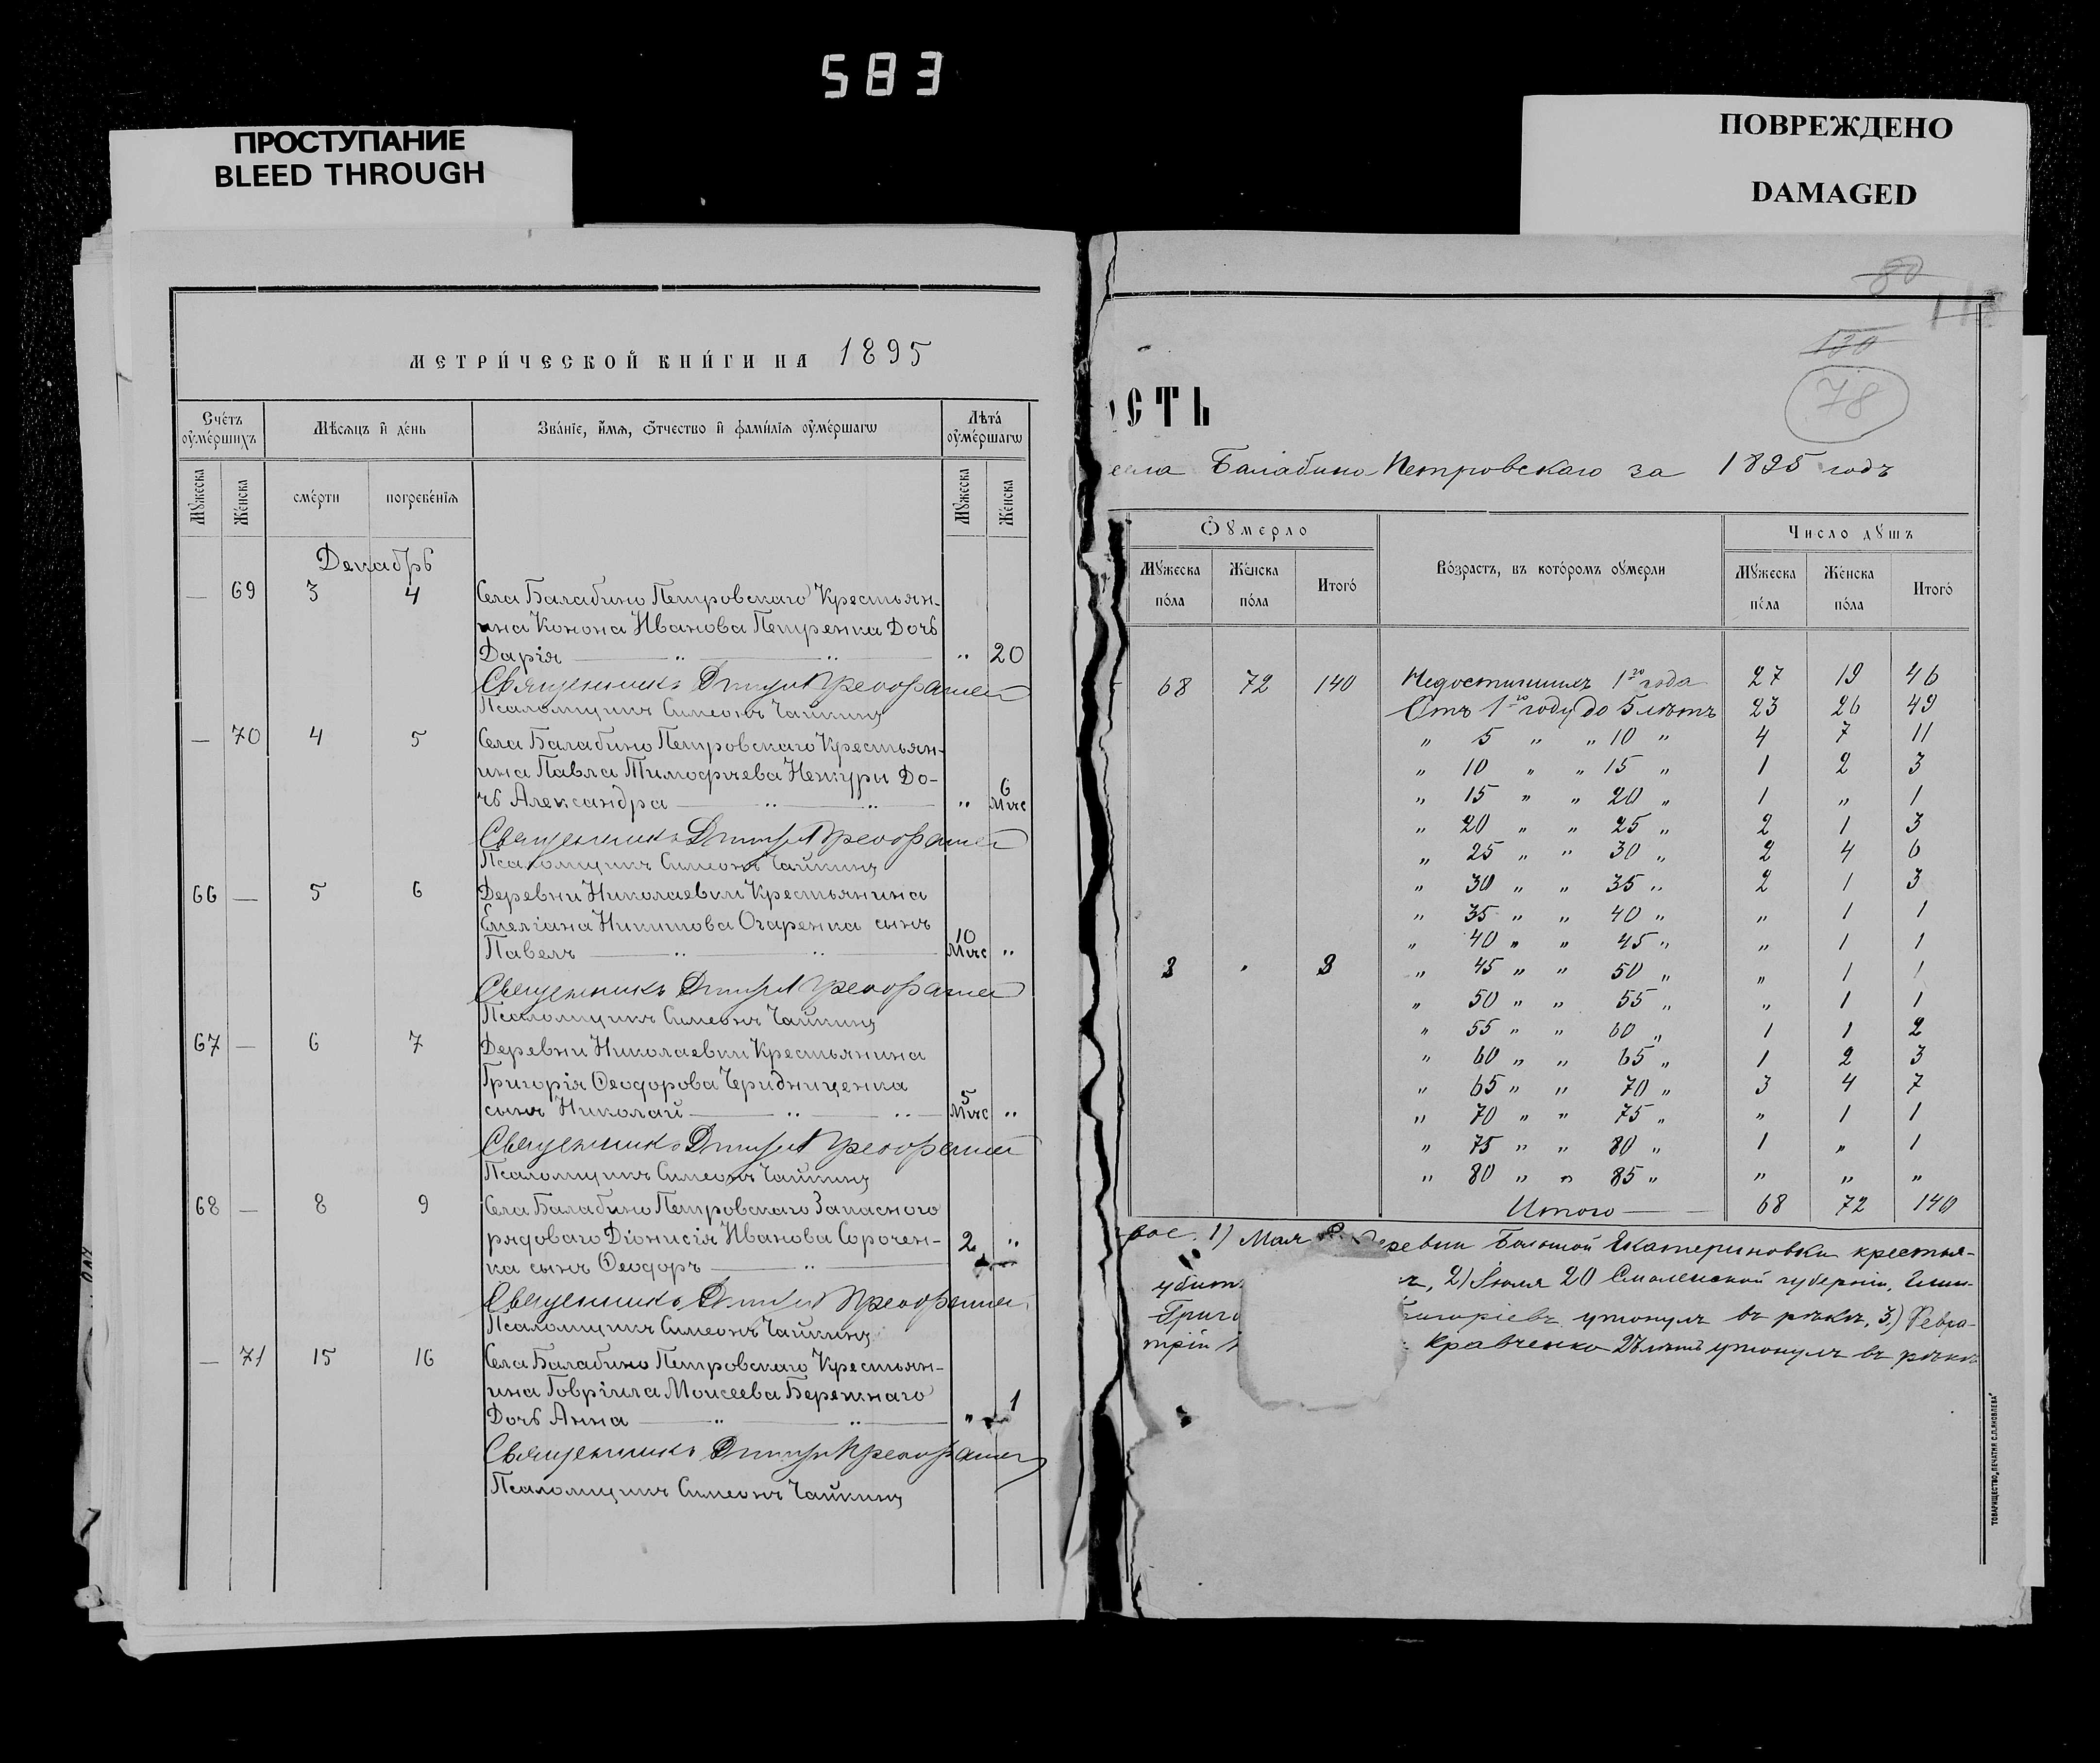 583
ПРОСТУПАНИЕ
BLEED THROUGH
ПОВРЕЖДЕНО
DAMAGED
МЕТРИ́ЧЕСКОЙ КНИ́ГИ НА 1895
Сче́тъ ᲂу҆ме́ршихъ
Мѣ́сѧцъ и҆ де́нь
Зва́нїе, и҆́мѧ, ѻ҆́тчество и҆ фами́лїѧ ᲂу҆ме́ршагѡ
Лѣта́ ᲂу҆ме́ршагѡ
Мꙋ́жеска
Же́нска
сме́рти
погребе́нїѧ
Мꙋ́жеска
Же́нска
Декабрь
— 69 3 4 Села Балабино Петровскаго Крестьян-
ина Конона Иванова Петренка Дочь
Дарія „ 20
Священникъ Дмитрій
Псаломщикъ Симеонъ Чайкинъ
— 70 4 5 Села Балабино Петровскаго Крестьян-
ина Павла Тимофѣева Ненуры До-
чь Александра „ 6 Мѣс
Священникъ Дмитрій
Псаломщикъ Симеонъ Чайкинъ
66 — 5 6 Деревни Николаевки Крестьянина
Емеліана Никитова Огаренка сынъ
Павелъ 10 Мѣс „
Священникъ Дмитрій
Псаломщикъ Симеонъ Чайкинъ
67 — 6 7 Деревни Николаевки Крестьянина
Григорія Ѳеодорова Чередниценка
сынъ Николай 5 Мѣс „
Священникъ Дмитрій
Псаломщикъ Симеонъ Чайкинъ
68 — 8 9 Села Балабино Петровскаго Запасного
рядоваго Діонисія Иванова Сорочен-
ка сынъ Ѳеодоръ 2 „
Священникъ Дмитрій
Псаломщикъ Симеонъ Чайкинъ
— 71 15 16 Села Балабино Петровскаго Крестьян-
ина Говріила Моисеева Бережнаго
Дочь Анна „ 1
Священникъ Дмитрій
Псаломщикъ Симеонъ Чайкинъ
80
130
78
СТЬ
села Балабино Петровскаго за 1895 годъ
Оу҆мерло
Мꙋ́жеска по́ла
Же́нска по́ла
Итого́
Во́зрастъ, въ кото́ромъ ᲂу҆мерли
Число дꙋшъ
Мꙋ́жеска по́ла
Же́нска по́ла
Итого́
68 72 140 Недостигшихъ 1го года 27 19 46
Отъ 1го году до 5 лѣтъ 23 26 49
„ 5 „ „ 10 „ 4 7 11
„ 10 „ „ 15 „ 1 2 3
„ 15 „ „ 20 „ 1 „ 1
„ 20 „ „ 25 „ 2 1 3
„ 25 „ „ 30 „ 2 4 6
„ 30 „ „ 35 „ 2 1 3
„ 35 „ „ 40 „ „ 1 1
„ 40 „ „ 45 „ „ 1 1
3 „ 3 „ 45 „ „ 50 „ „ 1 1
„ 50 „ „ 55 „ „ 1 1
„ 55 „ „ 60 „ 1 1 2
„ 60 „ „ 65 „ 1 2 3
„ 65 „ „ 70 „ 3 4 7
„ 70 „ „ 75 „ „ 1 1
„ 75 „ „ 80 „ 1 „ 1
„ 80 „ „ 85 „ „ „ „
Итого 68 72 140
1) Мая деревни Большой Екатериновки крестья-
убит 2) Іюля 20 Смоленской губерніи,
Григо григоріевъ утонулъ въ рѣкѣ, 3) Февра-
трій Кравченко 2 лѣтъ утонулъ въ рѣкѣ
ТОВАРИЩЕСТВО „ПЕЧАТНЯ С.П.ЯКОВЛЕВА“